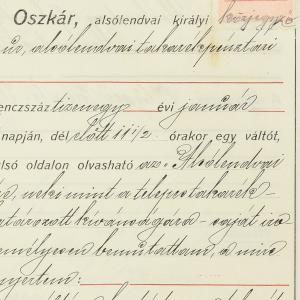 Oszkár, alsólendvai királyi közjegyző
úr, alsólendvai takarékpénztári
enczszáz tizenegy évi január
napján, dél előtt 11 1/2 órakor egy váltót,
lsó oldalon olvasható az „Alsólendvai
neki mint a telepes takarék-
kívánságára saját
személyesen bemutattam, a mire
nyertem: